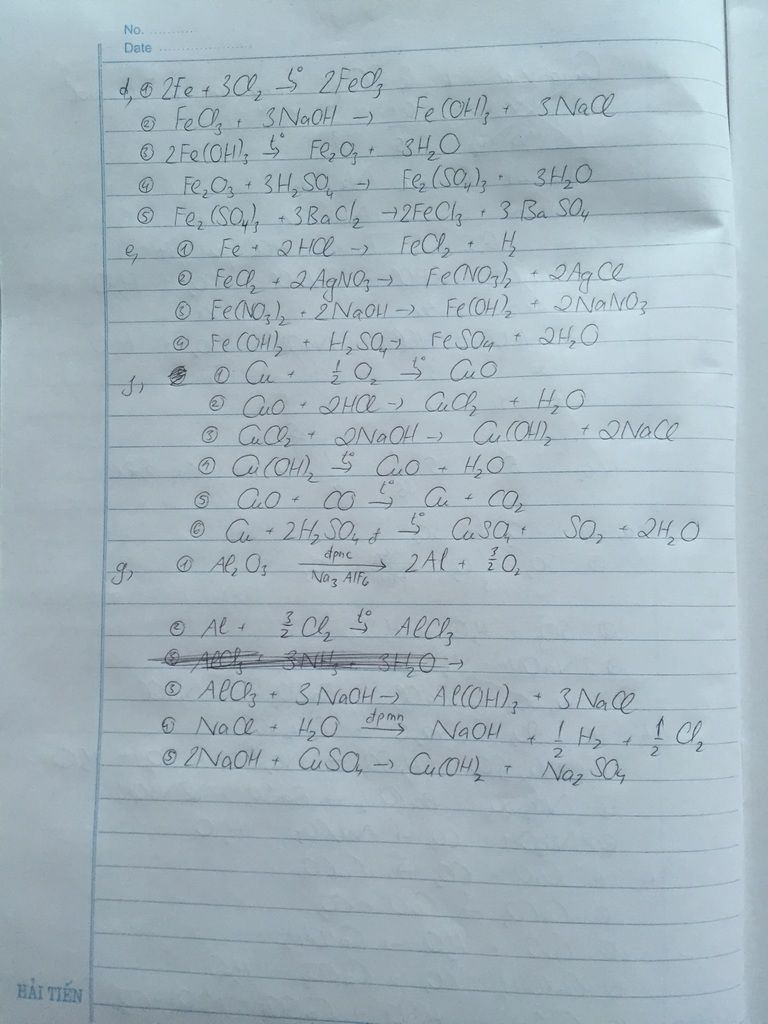 No. ..........
Date ......................
d, ① 2Fe + 3Cl₂ →(t°) 2FeCl₃
② FeCl₃ + 3NaOH → Fe(OH)₃ + 3NaCl
③ 2Fe(OH)₃ →(t°) Fe₂O₃ + 3H₂O
④ Fe₂O₃ + 3H₂SO₄ → Fe₂(SO₄)₃ + 3H₂O
⑤ Fe₂(SO₄)₃ + 3BaCl₂ → 2FeCl₃ + 3BaSO₄
e, ① Fe + 2HCl → FeCl₂ + H₂
② FeCl₂ + 2AgNO₃ → Fe(NO₃)₂ + 2AgCl
③ Fe(NO₃)₂ + 2NaOH → Fe(OH)₂ + 2NaNO₃
④ Fe(OH)₂ + H₂SO₄ → FeSO₄ + 2H₂O
f, ① Cu + ½ O₂ →(t°) CuO
② CuO + 2HCl → CuCl₂ + H₂O
③ CuCl₂ + 2NaOH → Cu(OH)₂ + 2NaCl
④ Cu(OH)₂ →(t°) CuO + H₂O
⑤ CuO + CO →(t°) Cu + CO₂
⑥ Cu + 2H₂SO₄ đ →(t°) CuSO₄ + SO₂ + 2H₂O
g, ① Al₂O₃ →(đpnc / Na₃AlF₆) 2Al + 3/2 O₂
② Al + 3/2 Cl₂ →(t°) AlCl₃
③ AlCl₃ + 3NH₃ + 3H₂O →
③ AlCl₃ + 3NaOH → Al(OH)₃ + 3NaCl
④ NaCl + H₂O →(đpmn) NaOH + ½ H₂ + ½ Cl₂
⑤ 2NaOH + CuSO₄ → Cu(OH)₂ + Na₂SO₄
HẢI TIẾN